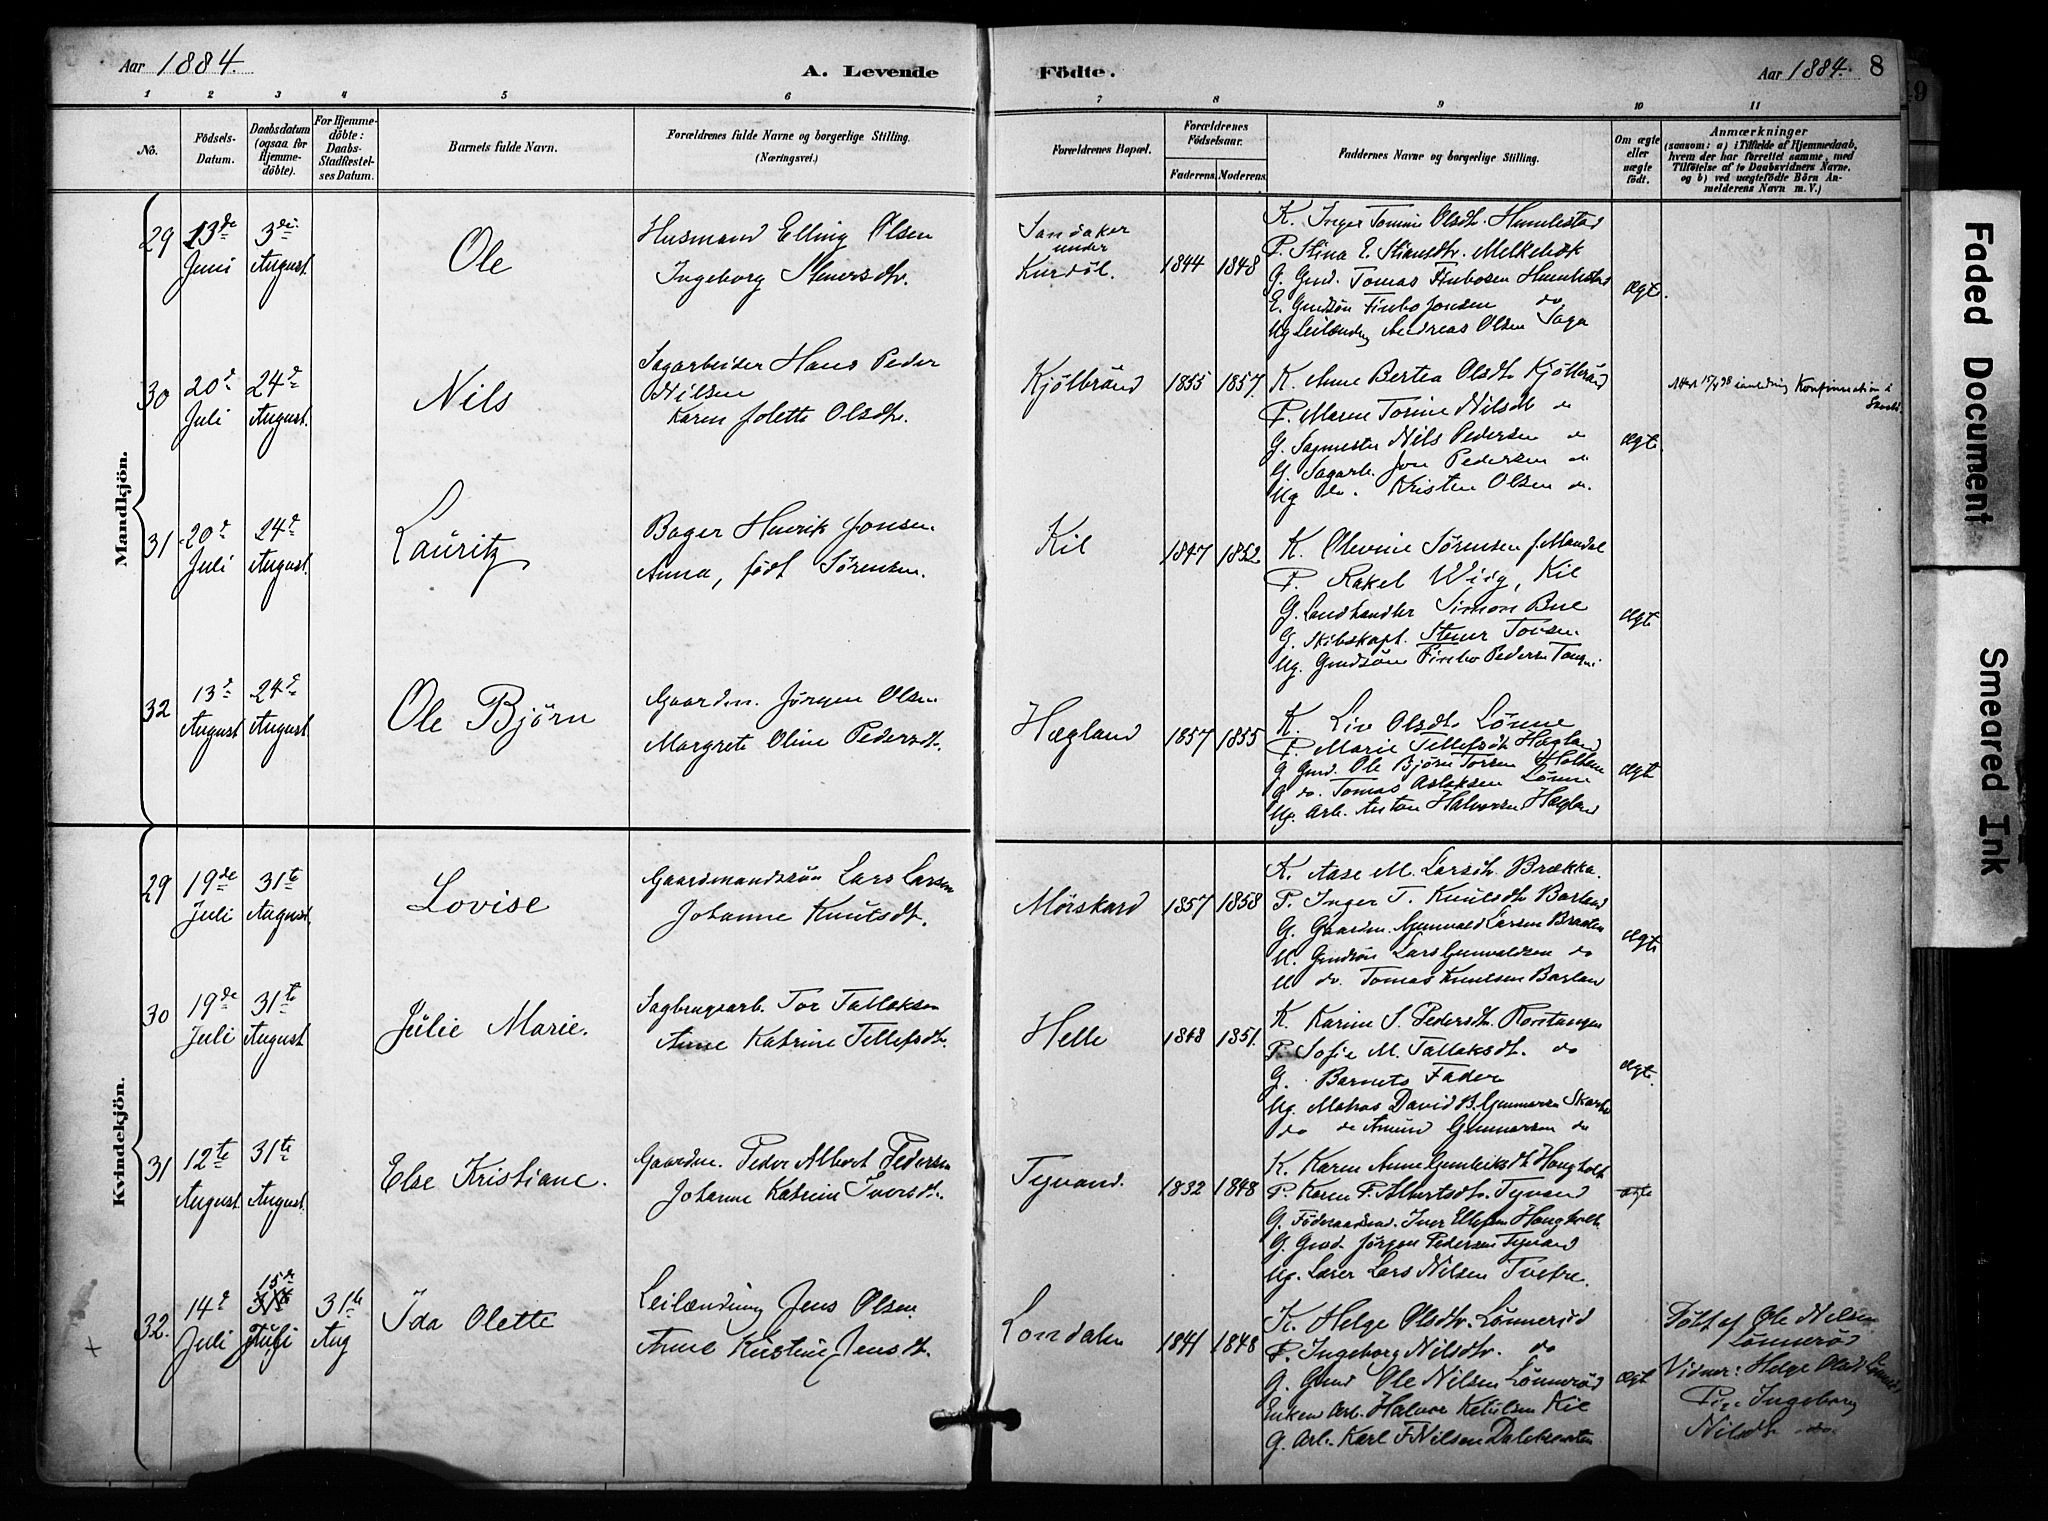 Aar 1884.
A. Levende
Födte.
Aar 1884. 8
1 2 3 4 5 6 7 8 9 10 11
No.
Födsels-Datum.
Daabsdatum (ogsaa for Hjemmedöbte).
For Hjemmedöbte: Daabs-Stadfæstelses Datum.
Barnets fulde Navn.
Forældrenes fulde Navne og borgerlige Stilling.
(Næringsvei.)
Forældrenes Bopæl.
Forældrenes Födselsaar.
Faderens. Moderens.
Faddernes Navne og borgerlige Stilling.
Om ægte eller uægte födt.
Anmærkninger
(saasom: a) i Tilfælde af Hjemmedaab,
hvem der har forrettet samme, med
Tilföielse af to Daabsvidners Navne,
og b) ved uægtefödte Börn Anmelderens Navn m. V.)
Mandkjön.
29 13de Juni 3die August Ole
Husmand Elling Olsen
Ingeborg Stenersdtr.
Sandaker
under
Kurdöl.
1844 1848
K. Inger Tomine Olsdtr. Humlestad
P. Stina Melkebæk
G. Gmd. Tomas Finbosen Humlestad
E. Gmdsön Finbo Jonsen do
Ug Leilænding Andreas Olsen Saga
Ægt.
30 20de Juli 24de August. Nils
Sagarbeider Hans Peder
Nilsen
Karen Jolette Olsdtr.
Kjölbrönd 1855 1857.
K. Anne Bertea Olsdtr Kjölbrönd
P. Maren Torine Nilsdtr do
G. Sagmester Nils Pedersen do
G. Sagarb. Jon Pedersen do
Ug do. Kristen Olsen do.
Ægt.
Konfirmation i
31 20de Juli 24de August. Lauritz
Bager Henrik Jonsen.
Anna, født Sørensen.
Kil 1847 1852
K. Olevine Sørensen f. Mandal
P. Rakel Wiig, Kil
G. Landhandler Simon Bue
G. Skibskapt. Stener Tonsen.
Ug. Gmdsön Finbo Pedersen
Ægt
32 13de August 24de August Ole Björn
Gaardm. Jørgen Olsen
Margrete Oline Pedersdtr.
Hægland 1857 1855
K. Liv Olsdtr Lønne
P. Marie Tellefsdtr Hægland
G Gmd. Ole Björn Torsen Holtene
G do. Tomas Aslaksen Lønne
Ug. Arb. Anton Halvorsen Hægland
Ægt
Kvindekjön.
29 19de Juli 31te August Lovise
Gaardmandssön Lars Larsen
Johanne Knutsdtr.
Mørskard 1857 1858
K. Aase M. Larsdtr Brække.
P. Inger T. Knutsdtr Barland
G. Gaardm. Gunuvald Larsen Braaten
U. Gmdsön Lars Gunuvaldsen do
U do. Tomas Knutsen Barland
Ægte
30 19de Juli 31te August Julie Marie.
Sagbrugsarb. Tor Tallaksen
Anne Katrine Tellefsdtr.
Helle 1848 1851.
K. Karine S. Pedersdtr. Rostangen
P. Sofie M. Tallaksdtr. do
G. Barnets Fader
Ug. Matros David B. Gunnarsen
do do Amund Gunnarsen do
Ægt.
31 12te August 31te August. Else Kristiane.
Gaardm. Peder Albert Pedersen
Johanne Katrine Iversdtr.
Tyvand. 1832 1848
K. Karen Anne Gunleiksdtr Hougholt
P. Karen P. Albertsdtr. Tyvand
G. Föderaadsm. Iver Ellefsen Hougholt.
G. Gmd. Jørgen Pedersen Tyvand
Ug. Lærer Lars Nilsen Tvetre.
Ægte
32. 14de Juli 15de 31te Juli 31te Aug Ida Olette
Leilænding Jens Olsen
Anne Kirstine Jensdtr.
Londalen 1841 1848
K. Helge Olsdtr. Lønnerød
P. Ingeborg Nilsdtr. do
G. Gmd Ole Nilsen Lønnerød
Enkem. Arb. Halvor Ketilsen Kil
G. Arb. Karl F Nilsen Dalekvarten
Ægt
Døbt af Ole Nilsen
Lønnerød
Vidner: Helge Olsdtr Lønnerød
Ingeborg
Nilsdtr do.
Faded Document
Smeared Ink